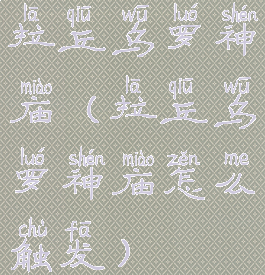 lā qiū wū luó shén
拉丘乌罗神
miào lā qiū wū
庙（拉丘乌
luó shén miào zěn me
罗神庙怎么
chù fā
触发）